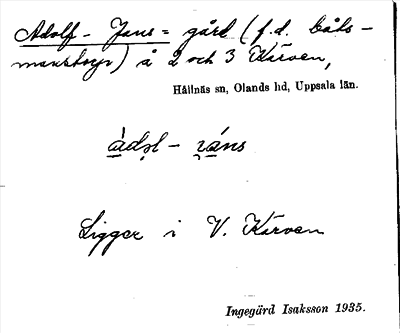 Adolf - Jans = gård (f.d. båts-
manstorp) å 2 och 3 Kärven,
Hållnäs sn, Olands hd, Uppsala län.
àdəl - jáns
Ligger i V. Kärven
Ingegärd Isaksson 1935.